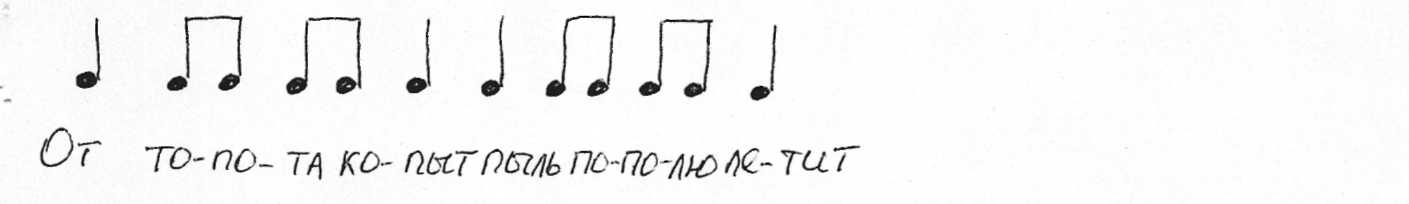 От то-по-та ко-пыт пыль по-по-лю ле-тит